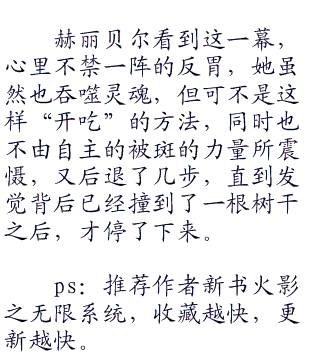 赫丽贝尔看到这一幕，
心里不禁一阵的反胃，她虽
然也吞噬灵魂，但可不是这
样“开吃”的方法，同时也
不由自主的被斑的力量所震
慑，又后退了几步，直到发
觉背后已经撞到了一根树干
之后，才停了下来。
ps：推荐作者新书火影
之无限系统，收藏越快，更
新越快。